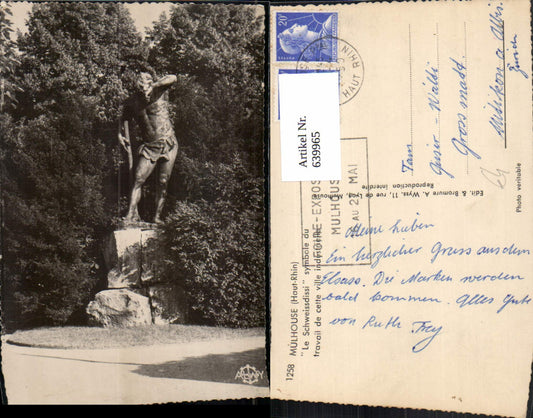 20F
HAUT RHIN
Artikel Nr.
639965
MULHOUSE
AU 25 MAI
Fam
Geiser - Wälti
Grossmatt.
Uitikon a Albis
Zürich
Edit. & Bromure A. Wyss, 11, rue de Lyon, Mulhouse
Reproduction interdite
Photo véritable
1258 MULHOUSE (Haut-Rhin)
"Le Schweissdissi" symbole du
travail de cette ville industrielle
Meine Lieben
Ein herzlicher Gruss aus dem
Elsass. Die Marken werden
bald kommen. Alles Gute
von Ruth Frey